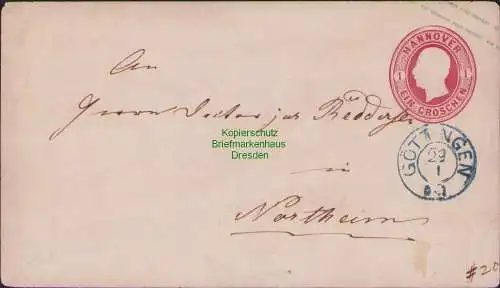 HANNOVER
1 1
EIN GROSCHEN
An
Herrn Doctor jur Redderse
Kopierschutz
Briefmarkenhaus
Dresden
GÖTTINGEN
29
1
in
Northeim
#20